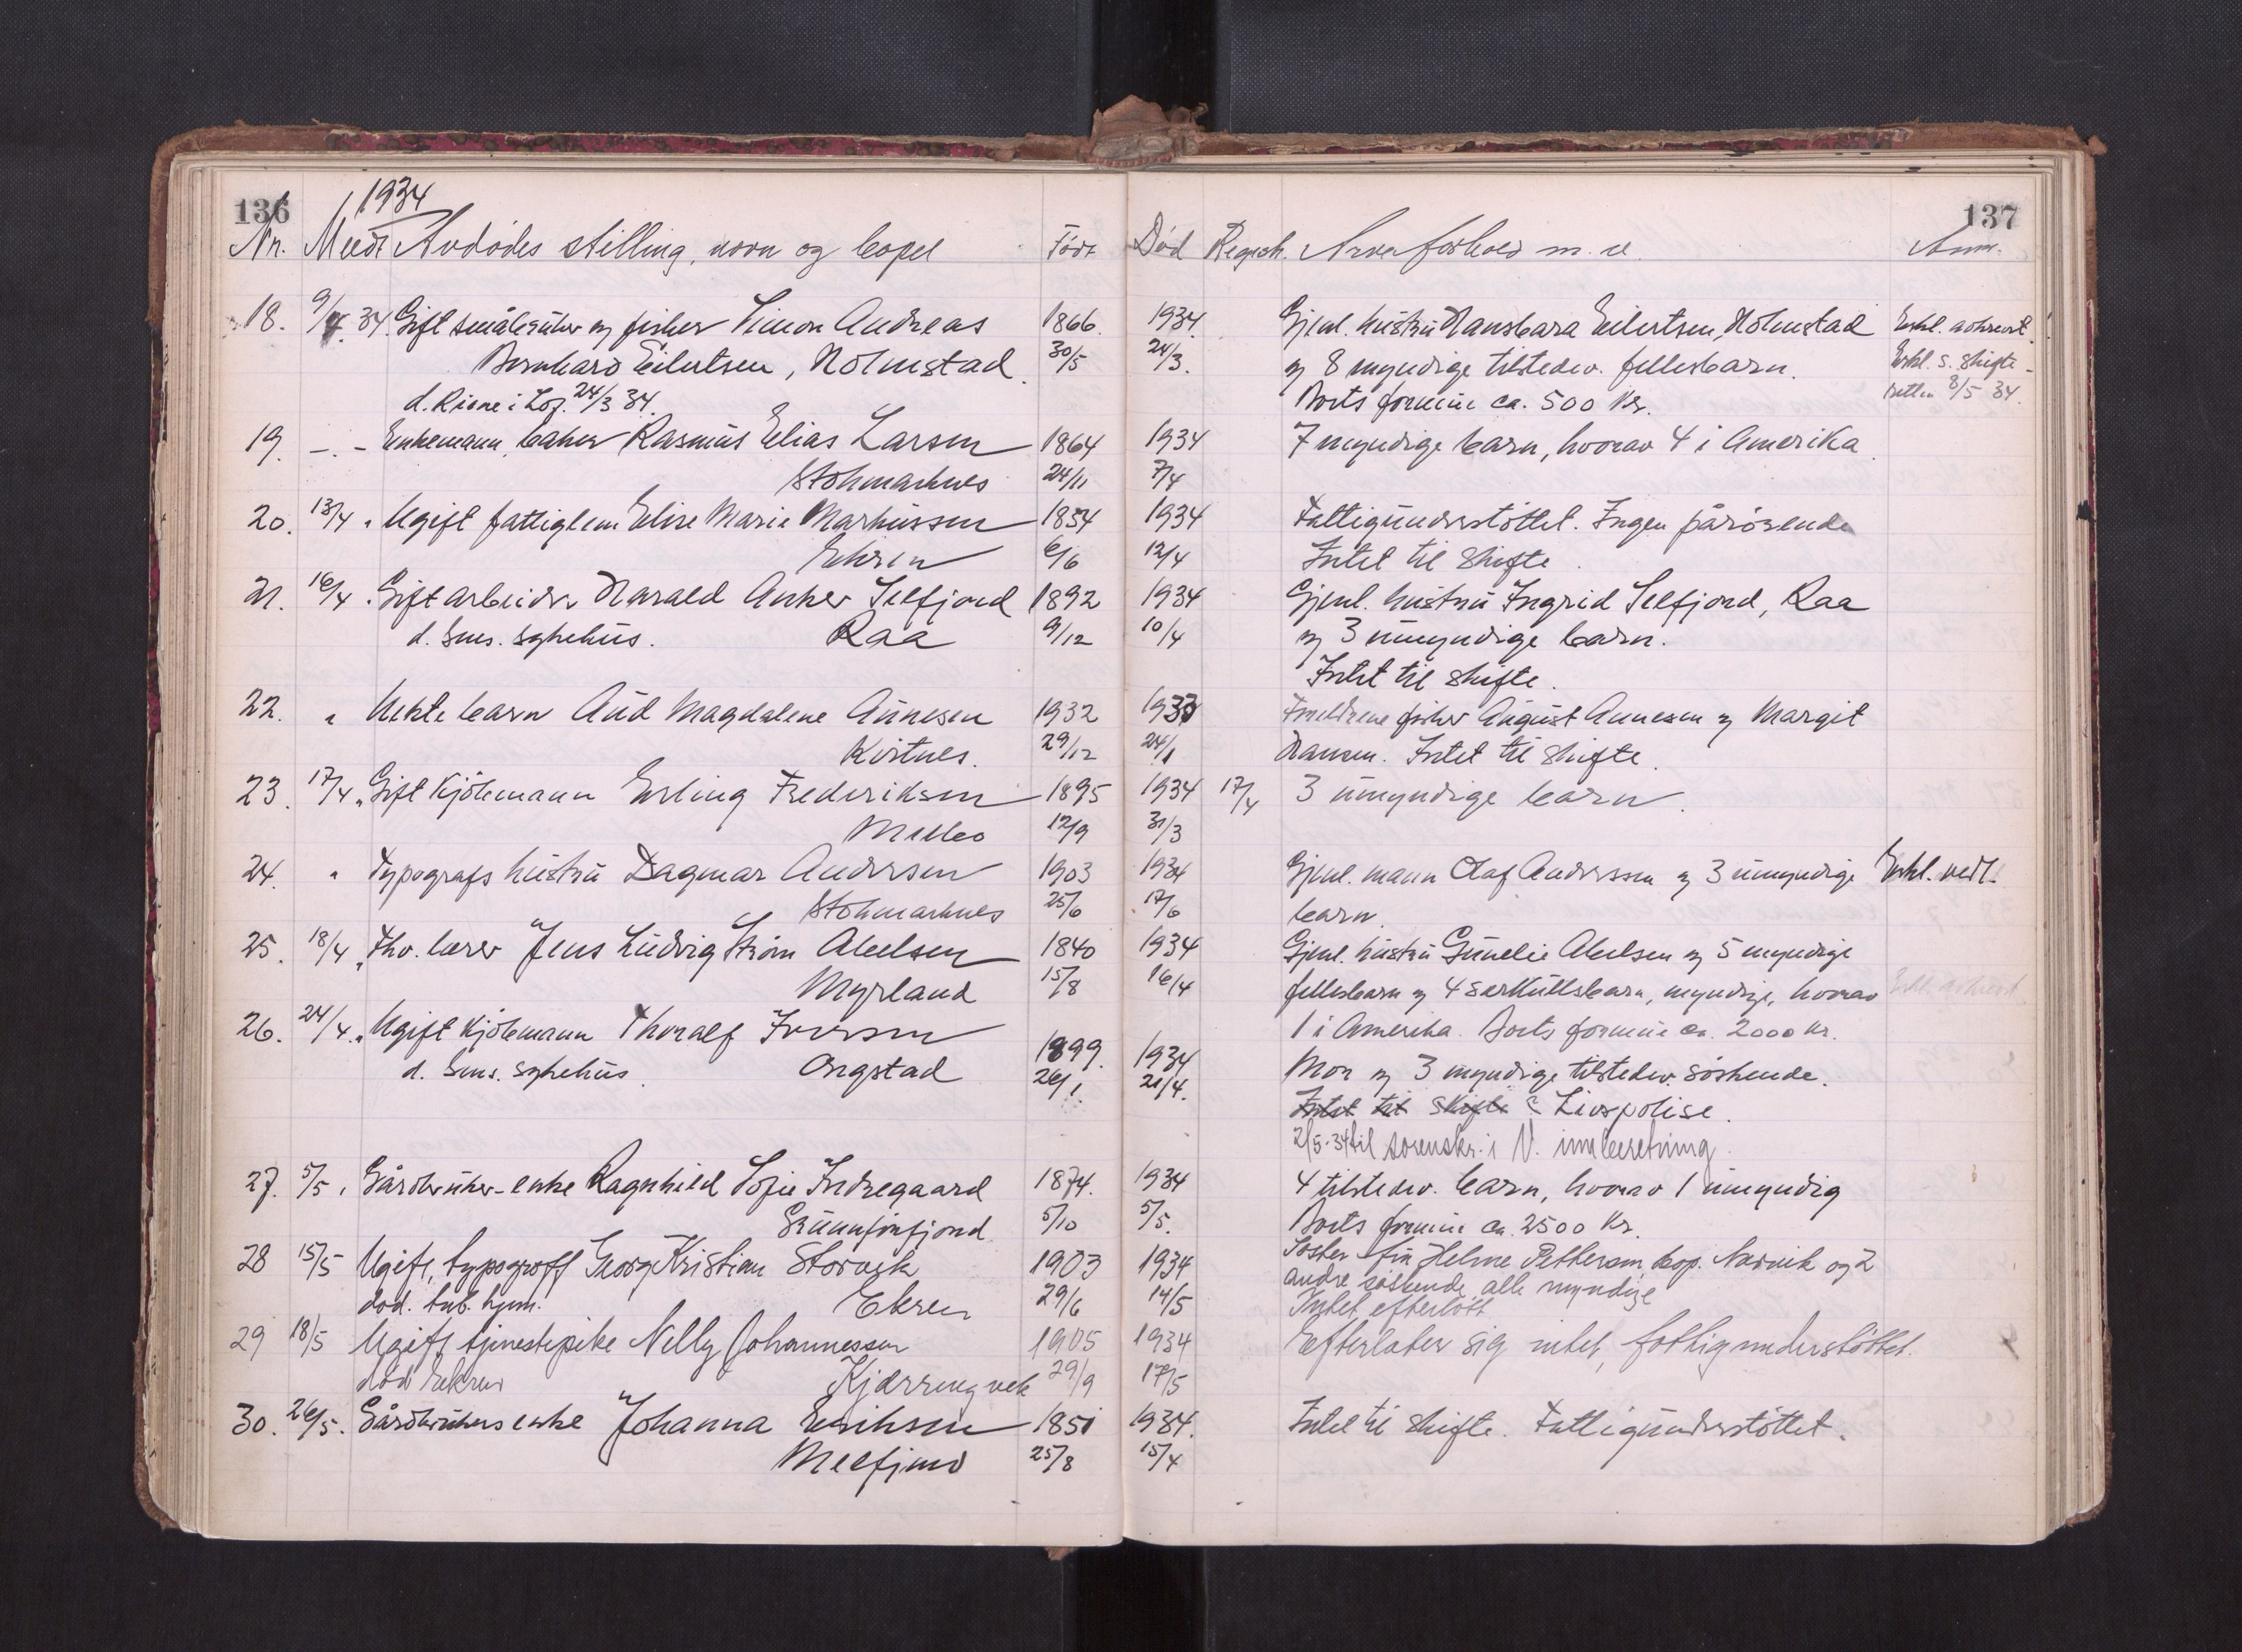 136
1934
Nr. Meldt Avdødes stilling, navn og bopel Født
18. 9/4 34. Gift småbruker og fisker Simon Andreas 1866.
Bernhard Eilertsen, Holmstad. 30/5
d. Risvær i Lof. 24/3 34.
19. -.- Enkemann, baker Rasmus Elias Larsen 1864
Stokmarknes 24/11
20. 13/4 " Ugift fattiglem Elise Marie Markussen 1854
Ekren 6/6
21. 16/4 " Gift arbeider Harald Anker Selfjord 1892
d. Sms. sykehus. Raa 9/12
22. " Uekte barn Aud Magdalene Aunesen 1932
Kirknes. 29/12
23. 17/4 " Gift kjøbmann Erling Frederiksen 1895
Melbo 12/9
24. " Typografs hustru Dagmar Andersen 1903
Stokmarknes 25/6
25. 18/4 " Fhv. lærer Jens Ludvig Strøm Abelsen 1840
Myrland 15/8
26. 24/4 " Ugift kjøbmann Thoralf Iversen
1899.
d. Sms. sykehus. Ongstad 26/1
27. 5/5 " Gårdbruker-enke Ragnhild Sofie Indregaard 1874.
Grunnførfjord 5/10
28 15/5 Ugift, typograff Georg Kristian Storvik 1903
død. tub. hjem. Ekren 29/6
29 18/5 Ugift tjenestepike Nelly Johannessen 1905
død Ekren Kjerringvik 29/9
30. 26/5. Gårdbrukers enke Johanna Eriksen 1851
Melfjord 25/8
137
Død Registr. Arveforhold m. v. Anm.
1934. Gjenl. hustru Hansbara Eilertsen, Holmstad
24/3. og 8 myndige tilstedev. fellesbarn. Erkl. s. skifte-
Boets formue ca. 500 kr. retten 8/5 34.
1934 7 myndige barn, hvorav 4 i Amerika.
7/4
1934 Fattigunderstøttet. Ingen pårørende
12/4 Intet til skifte.
1934 Gjenl. hustru Ingrid Selfjord, Raa
10/4 og 3 umyndige barn.
Intet til skifte.
1933 Foreldrene fisker August Aunesen og Margit
24/1 Hansen. Intet til skifte.
1934 17/4 3 umyndige barn.
31/3
1934 Gjenl. mann Olaf Anderssen og 3 umyndige Erkl. vedl.
17/6 barn.
1934 Gjenl. hustru Gunelie Abelsen og 5 myndige
16/4 fellesbarn og 4 særkullsbarn, myndige, hvorav
1 i Amerika. Boets formue ca. 2000 kr.
1934 Mor og 3 myndige tilstedev. søskende.
21/4. Intet til skifte Livspolise.
2/5-34 til sorenskr. i V. innberetning.
1934 4 tilstedev. barn, hvorav 1 umyndig
5/5. Boets formue ca. 2500 kr.
1934 Søster fru Helene Pettersen bop. Narvik og 2
andre søskende alle myndige
14/5 Intet efterlatt
1934 Efterlater sig intet, fattigunderstøttet.
17/5
1934. Intet til skifte. Fattigunderstøttet.
15/4